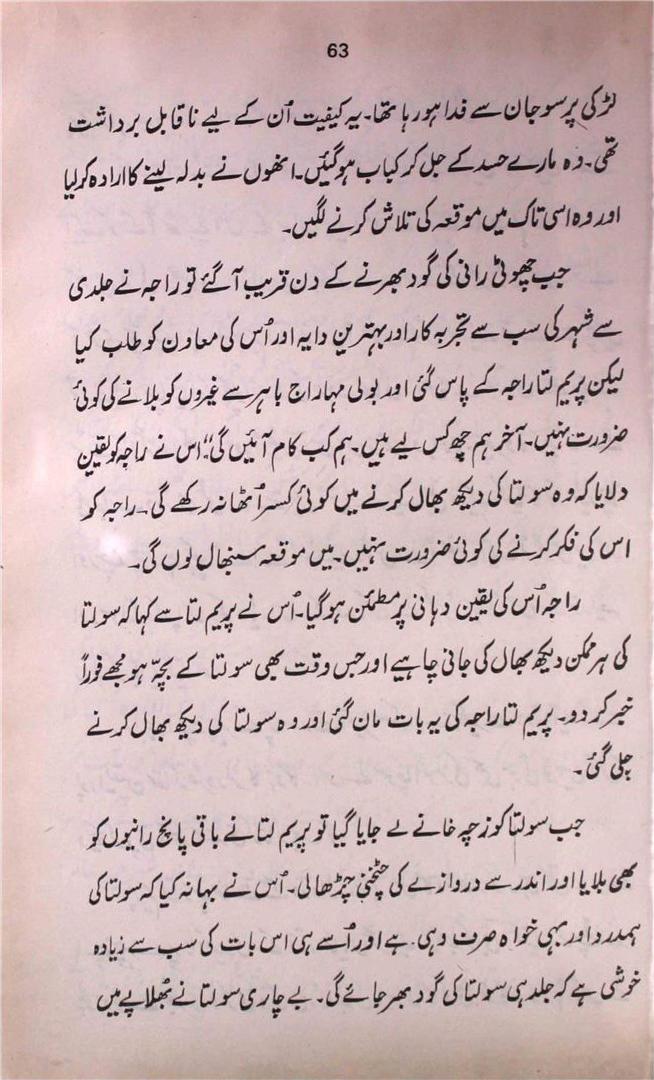 63
لڑکی پر سو جان سے فدا ہو رہا تھا۔ یہ کیفیت اُن کے لیے ناقابل برداشت
تھی۔ وہ مارے حسد کے جل کر کباب ہوگئیں۔ انھوں نے بدلہ لینے کا ارادہ کر لیا
اور وہ اسی تاک میں موقعہ کی تلاش کرنے لگیں۔
جب چھوٹی رانی کی گود بھرنے کے دن قریب آگئے تو راجہ نے جلدی
سے شہر کی سب سے تجربہ کار اور بہترین دایہ اور اُس کی معاون کو طلب کیا
لیکن پریم لتا راجہ کے پاس گئی اور بولی مہاراج باہر سے غیروں کو بلانے کی کوئی
ضرورت نہیں۔ آخر ہم چھ کس لیے ہیں۔ ہم کب کام آئیں گی"۔ اس نے راجہ کو یقین
دلایا کہ وہ سولتا کی دیکھ بھال کرنے میں کوئی کسر اُٹھا نہ رکھے گی۔ راجہ کو
اس کی فکر کرنے کی کوئی ضرورت نہیں۔ میں موقعہ سنبھال لوں گی۔
راجہ اُس کی یقین دہانی پر مطمئن ہوگیا۔ اُس نے پریم لتا سے کہا کہ سولتا
کی ہر ممکن دیکھ بھال کی جانی چاہیے اور جس وقت بھی سولتا کے بچہّ ہو مجھے فوراً
خبر کر دو۔ پریم لتا راجہ کی یہ بات مان گئی اور وہ سولتا کی دیکھ بھال کرنے
چلی گئی۔
جب سولتا کو زچہ خانے لے جایا گیا تو پریم لتا نے باقی پانچ رانیوں کو
بھی بلایا اور اندر سے دروازے کی چٹخنی چڑھا لی۔ اُس نے بہانہ کیا کہ سولتا کی
ہمدرد اور بہی خواہ صرف وہی ہے اور اُسے ہی اس بات کی سب سے زیادہ
خوشی ہے کہ جلد ہی سولتا کی گود بھر جائے گی۔ بے چاری سولتا نے بُھلاپے میں